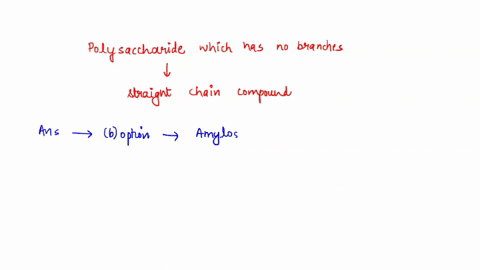 Polysaccharide which has no branches
↓
straight chain compound
Ans → (b) option → Amylos